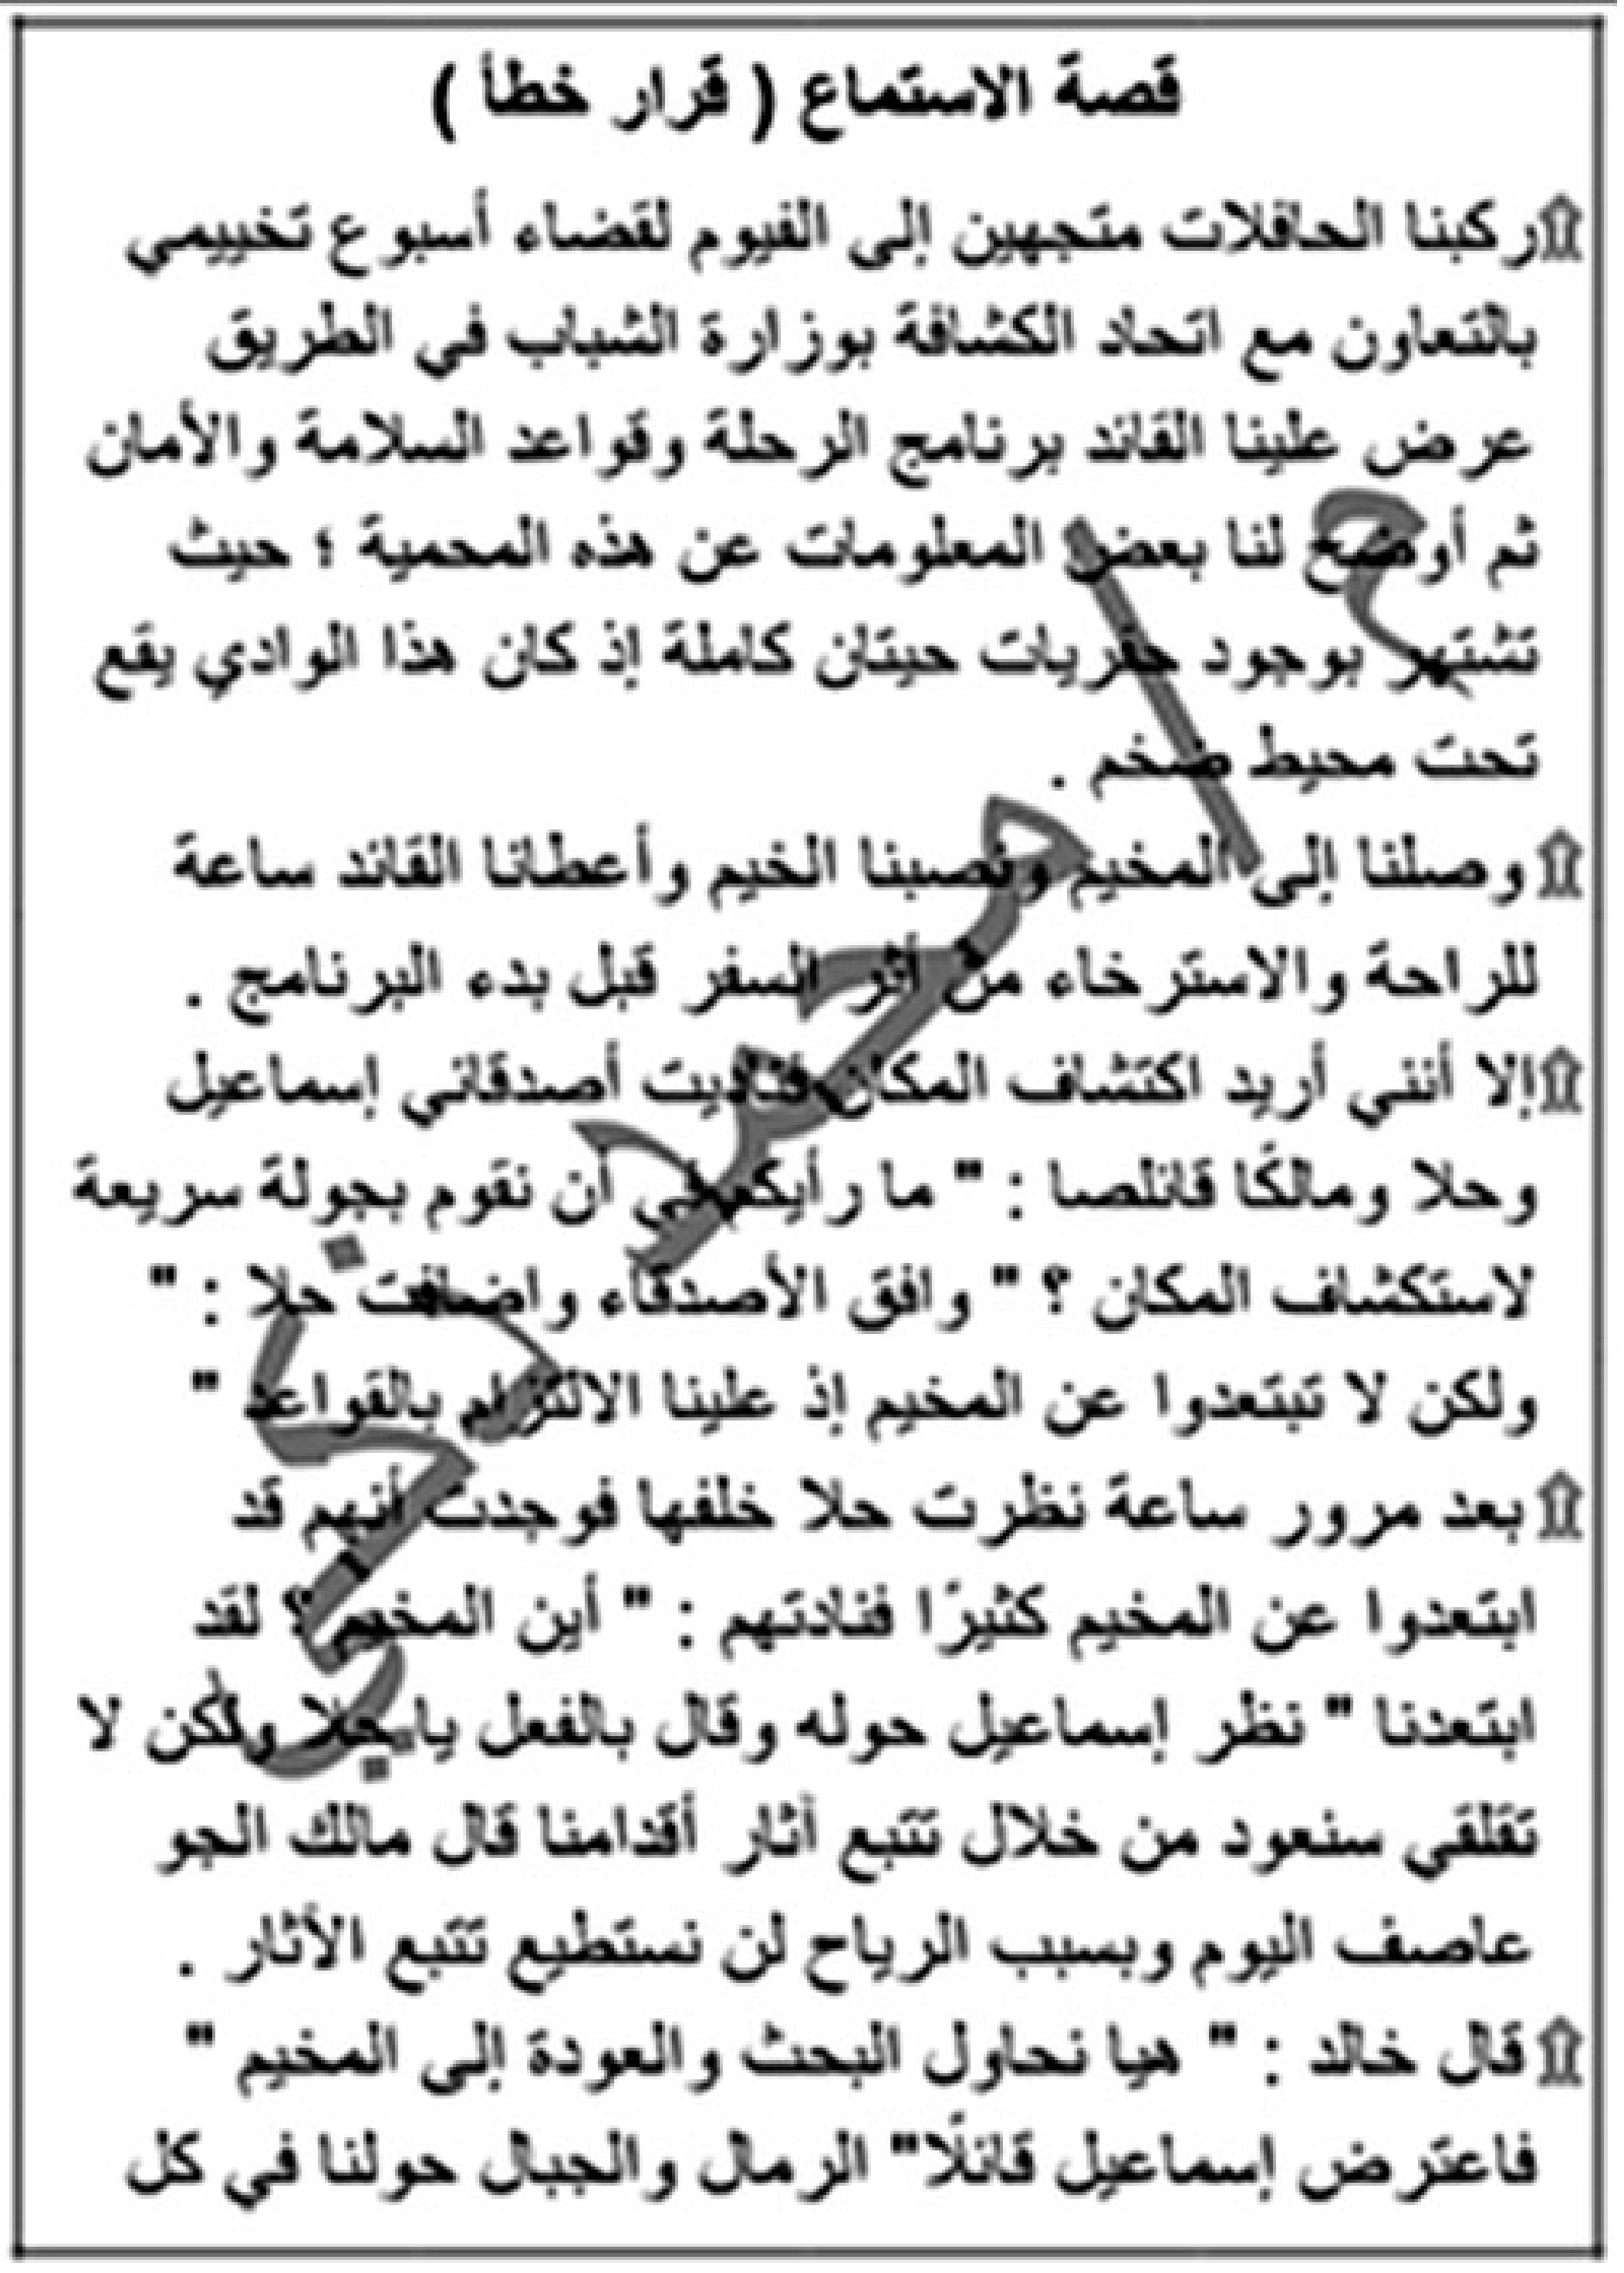 قصة الاستماع ( قرار خطأ )
ركبنا الحافلات متجهين إلى الفيوم لقضاء أسبوع تخييمي
بالتعاون مع اتحاد الكشافة بوزارة الشباب في الطريق
عرض علينا القائد برنامج الرحلة وقواعد السلامة والأمان
ثم أوضح لنا بعض المعلومات عن هذه المحمية ؛ حيث
تشتهر بوجود حفريات حيتان كاملة إذ كان هذا الوادي يقع
تحت محيط ضخم .
وصلنا إلى المخيم ونصبنا الخيم وأعطانا القائد ساعة
للراحة والاسترخاء من أثر السفر قبل بدء البرنامج .
إلا أنني أريد اكتشاف المكان فناديت أصدقائي إسماعيل
وحلا ومالكًا قائلصا : " ما رأيكم في أن نقوم بجولة سريعة
لاستكشاف المكان ؟ " وافق الأصدقاء واضافت حلا : "
ولكن لا تبتعدوا عن المخيم إذ علينا الالتزام بالقواعد "
بعد مرور ساعة نظرت حلا خلفها فوجدت أنهم قد
ابتعدوا عن المخيم كثيرًا فنادتهم : " أين المخيم ؟ لقد
ابتعدنا " نظر إسماعيل حوله وقال بالفعل يا حلا ولكن لا
تقلقي سنعود من خلال تتبع آثار أقدامنا قال مالك الجو
عاصف اليوم وبسبب الرياح لن نستطيع تتبع الآثار .
قال خالد : " هيا نحاول البحث والعودة إلى المخيم "
فاعترض إسماعيل قائلًا" الرمال والجبال حولنا في كل